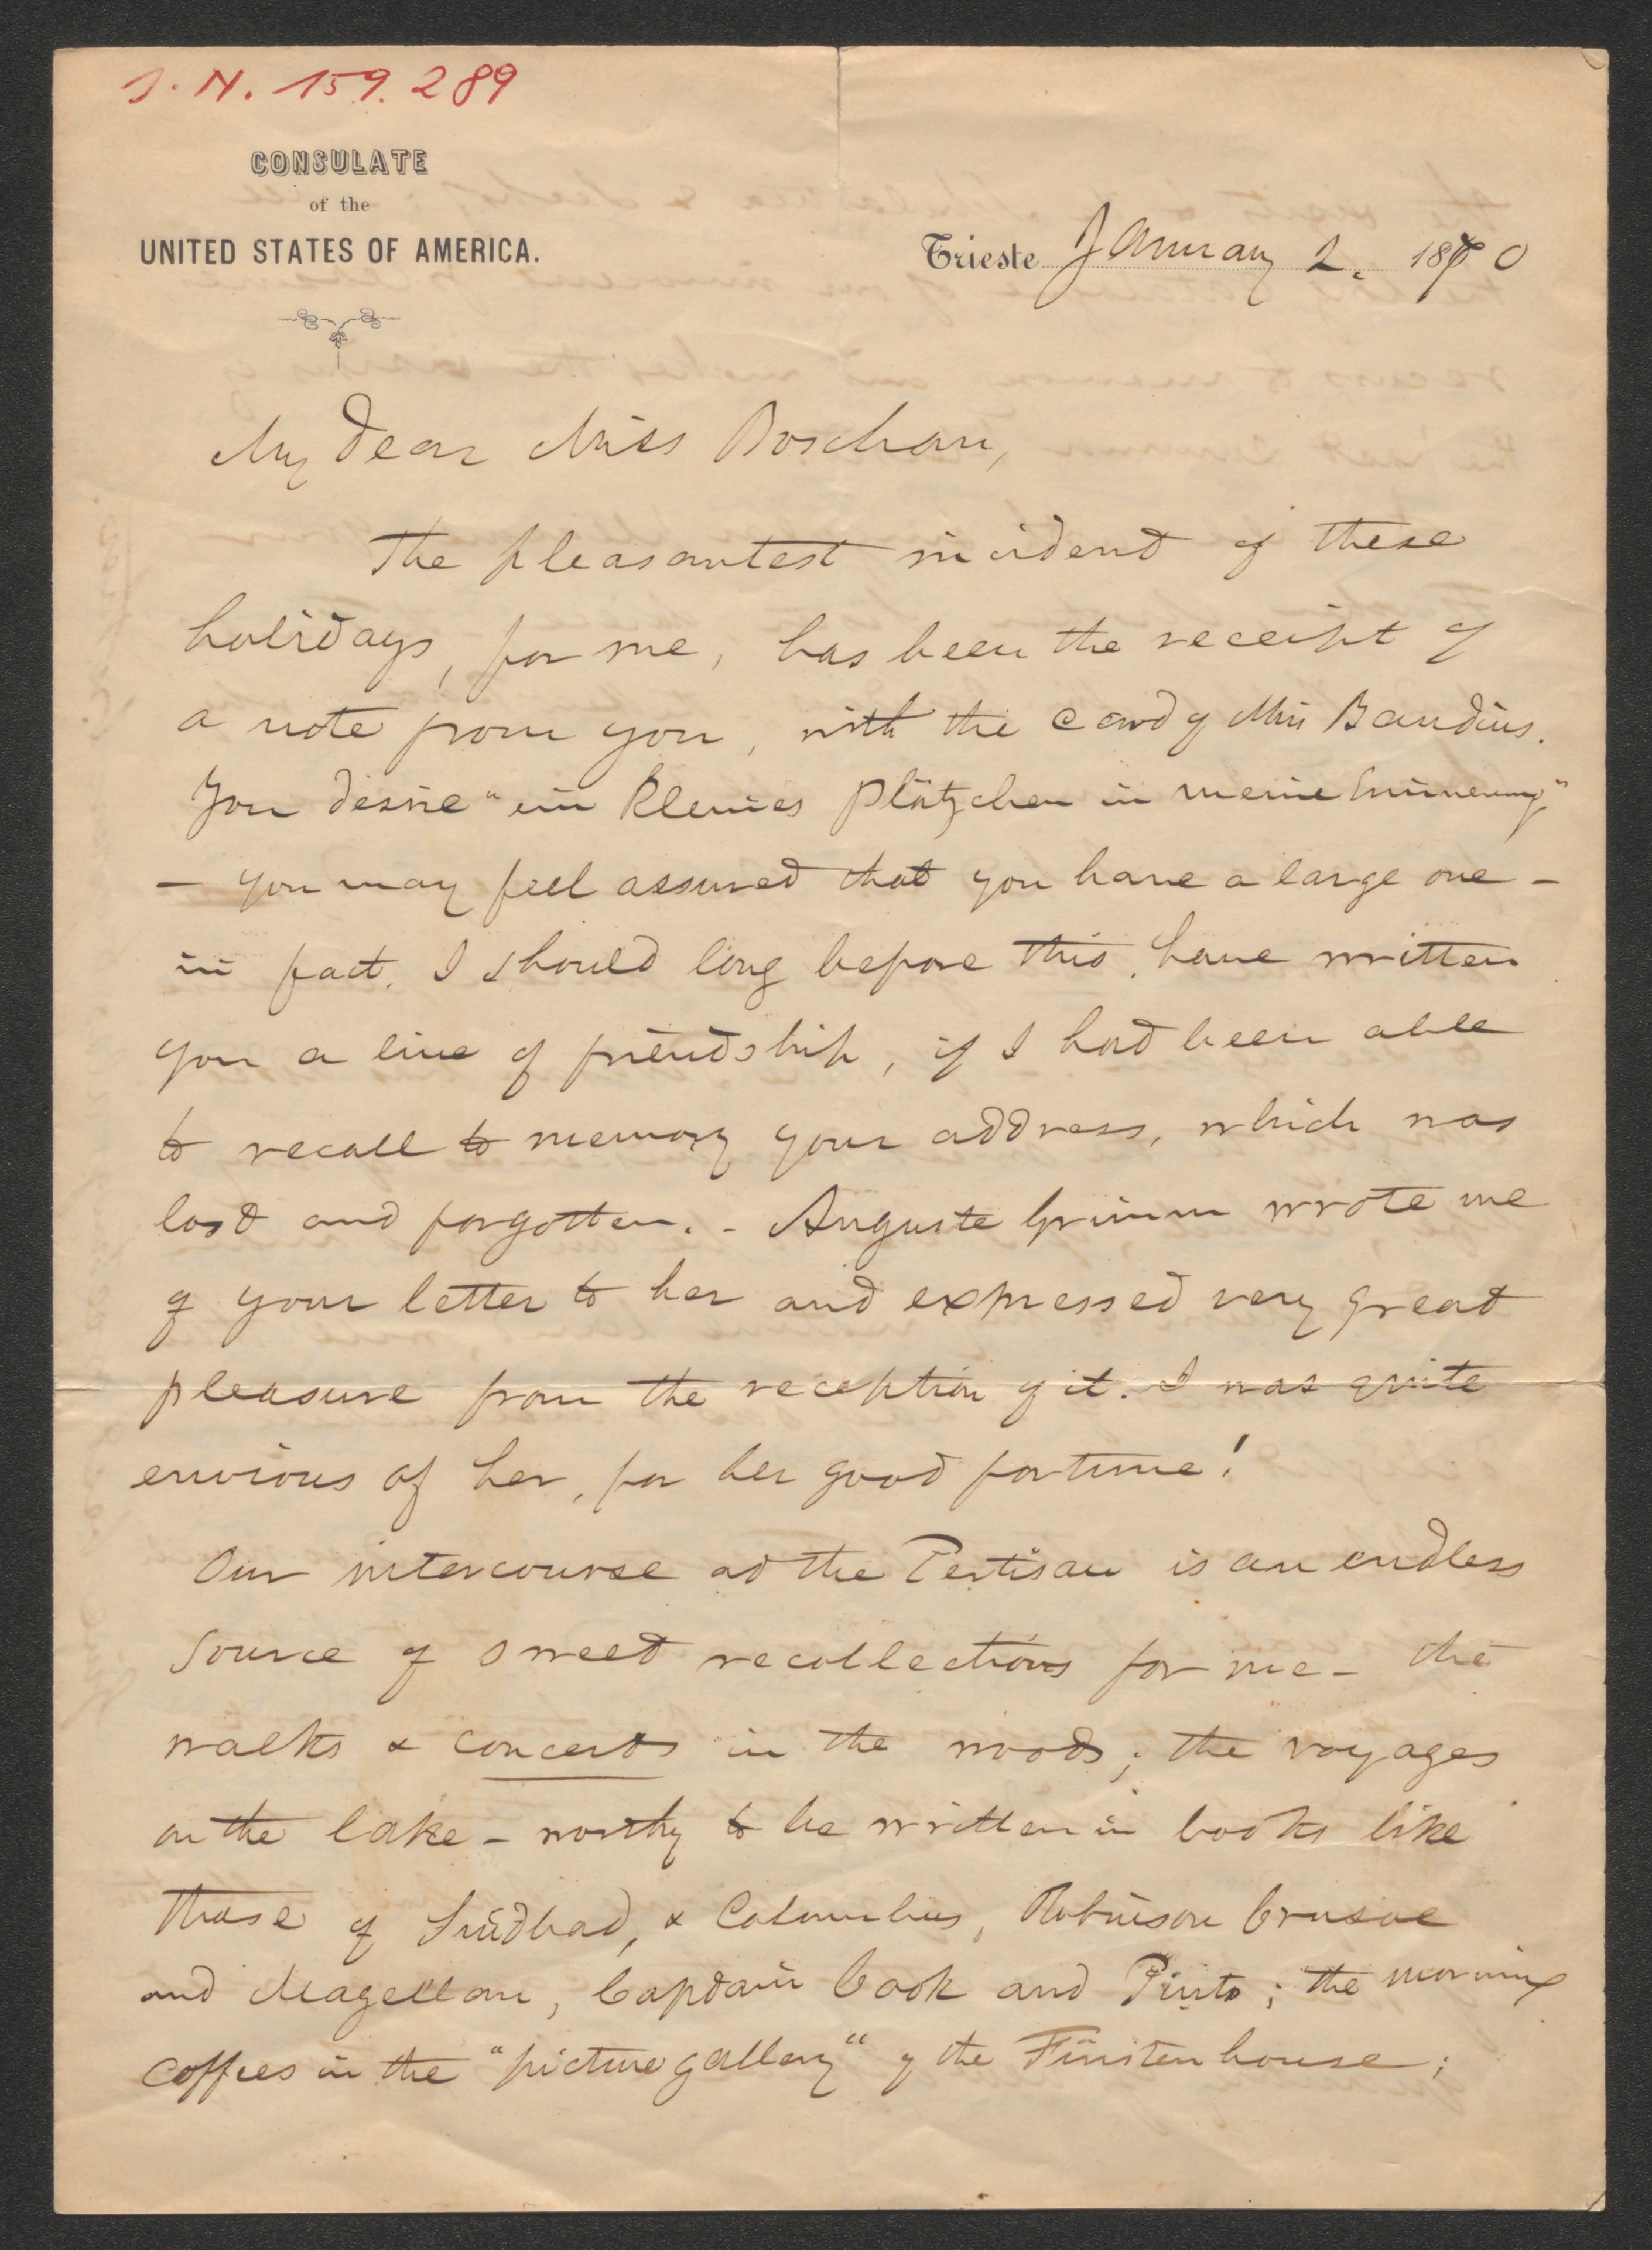 J. N. 159.289
CONSULATE
of the
UNITED STATES OF AMERICA.
Trieste January 2. 1870
My dear Miss Boschan,
The pleasantest incident of these
holidays, for me, has been the receipt of
a note from you, with the card of Miss Baudius.
You desire "ein kleines Plätzchen in meine Erinnerung"
— you may feel assured that you have a large one —
in fact, I should long before this, have written
you a line of friendship, if I had been able
to recall to memory your address, which was
lost and forgotten. - Auguste Grimm wrote me
of your letter to her and expressed very great
pleasure from the reception of it. I was quite
envious of her, for her good fortune!
Our intercourse at the Pertisau is an endless
source of sweet recollections for me - the
walks & concerts in the woods; the voyages
on the lake - worthy to be written in books like
those of Sindbad, & Columbus, Robinson Crusoe
and Magellan, Captain Cook and Pinto; the morning
coffees in the "picture gallery" of the Fürstenhouse;